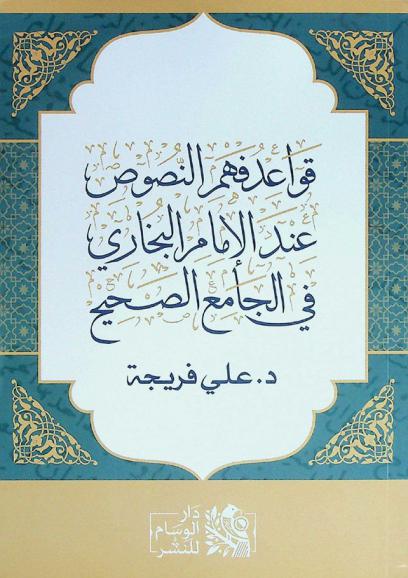 قواعد فهم النصوص
عند الإمام البخاري
في الجامع الصحيح
د. علي فريجة
دار
الوسام
للنشر